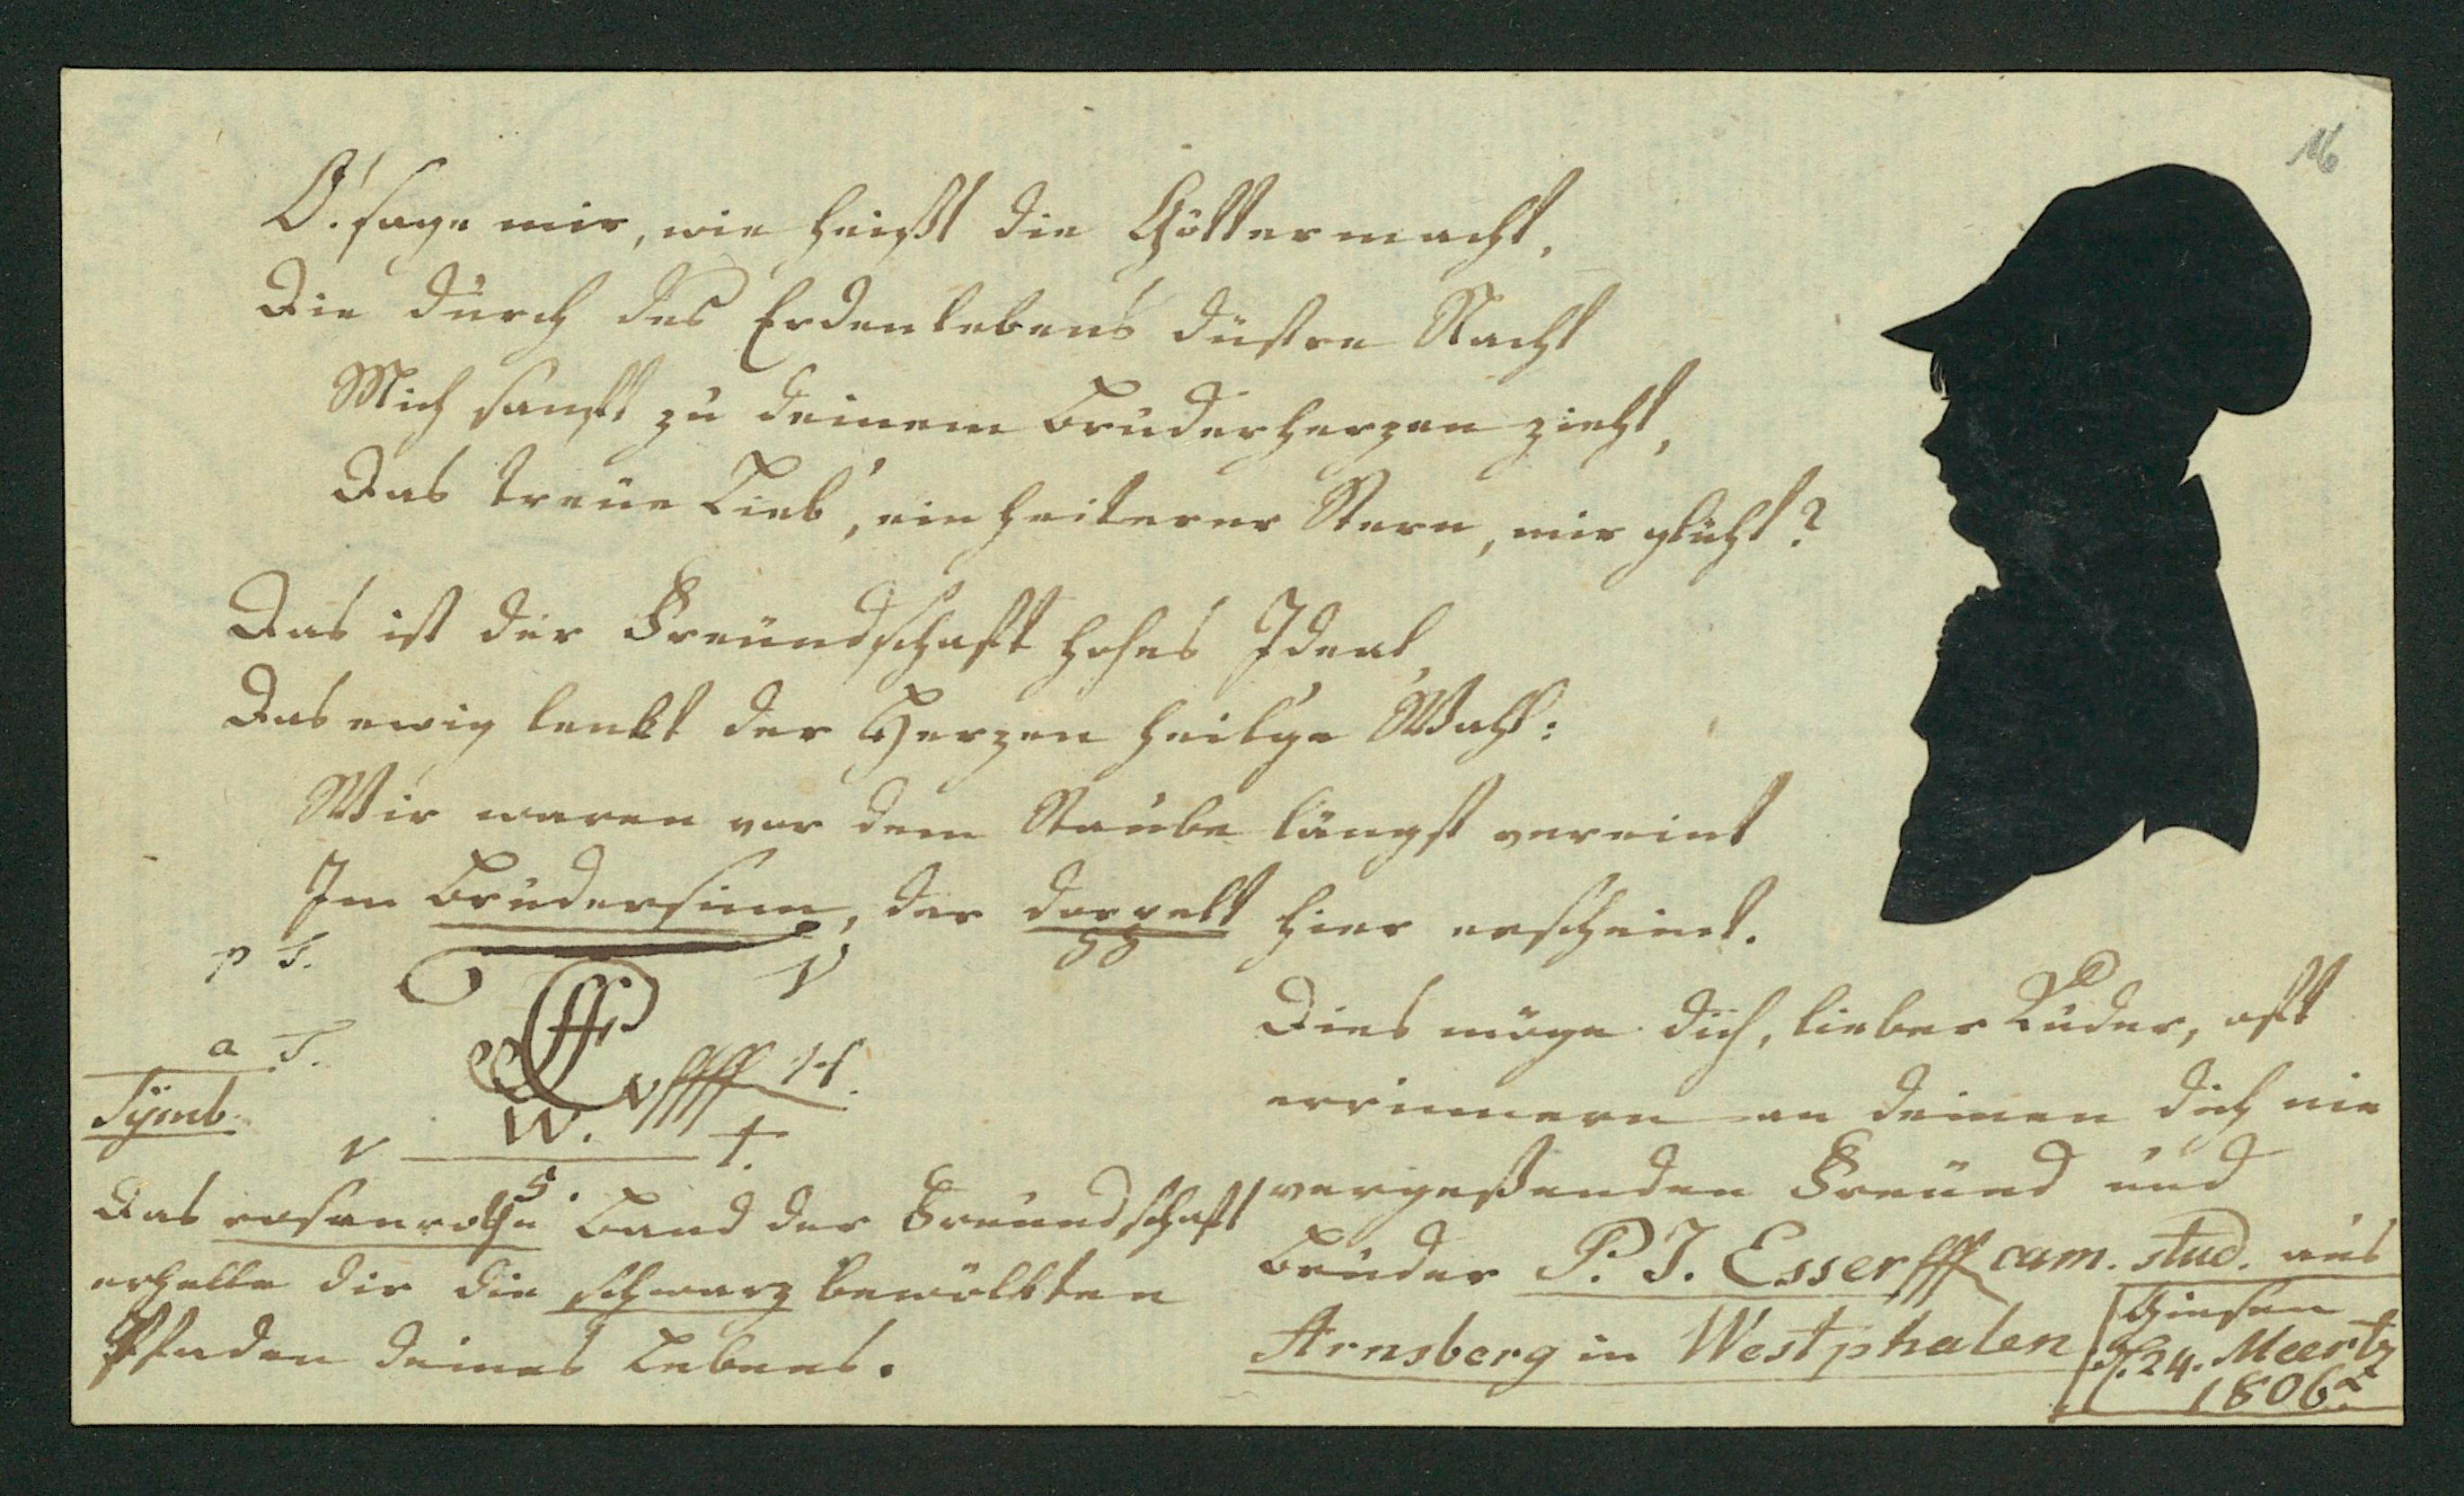 16
O! sage mir, wie heißt die Göttermacht,
Die durch des Erdenlebens düstre Nacht
Mich sanft zu deinem Bruderherzen zieht,
Das treue Lieb', ein heiterer Stern, mir glüht?
Das ist der Freundschaft hohes Ideal,
Das ewig lenkt der Herzen heilge Wahl:
Wir waren vor dem Staube längst vereint
Im Brudersinn, der doppelt hier erscheint.
p T.
a T.
Symb.
V
W.
v
t.
5.
Das rosenrothe Band der Freundschaft
erhelle dir die schwarz bewölkten
Pfaden deines Lebens.
Dies möge dich, lieber Lüder, oft
errinnern an deinen dich nie
vergeßenden Freund und
Bruder P. J. Esser cam. stud. aus
Arnsberg in Westphalen
Giesen
d. 24. Meertz
1806.